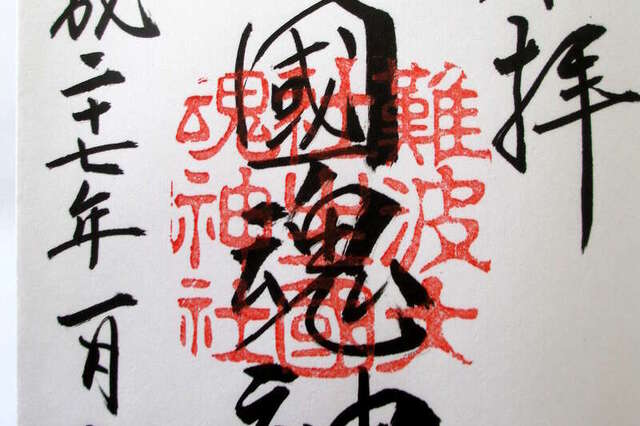 拝
國魂神
成二十七年一月
難波大
社生國
魂神社